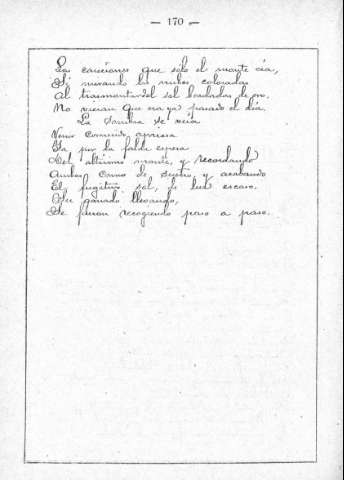 — 170 —
Las canciones que sólo el monte oía,
Si mirando las nubes coloradas
Al trasmontar del sol bordadas de oro,
No vieran que era ya pasado el día.
La sombra se veía
Venir corriendo apriesa
Ya por la falda espesa
Del altísimo monte, y recordando
Ambos como de sueño, y acabando
El fugitivo sol, de luz escaso.
Su ganado llevando,
Se fueron recogiendo paso a paso.